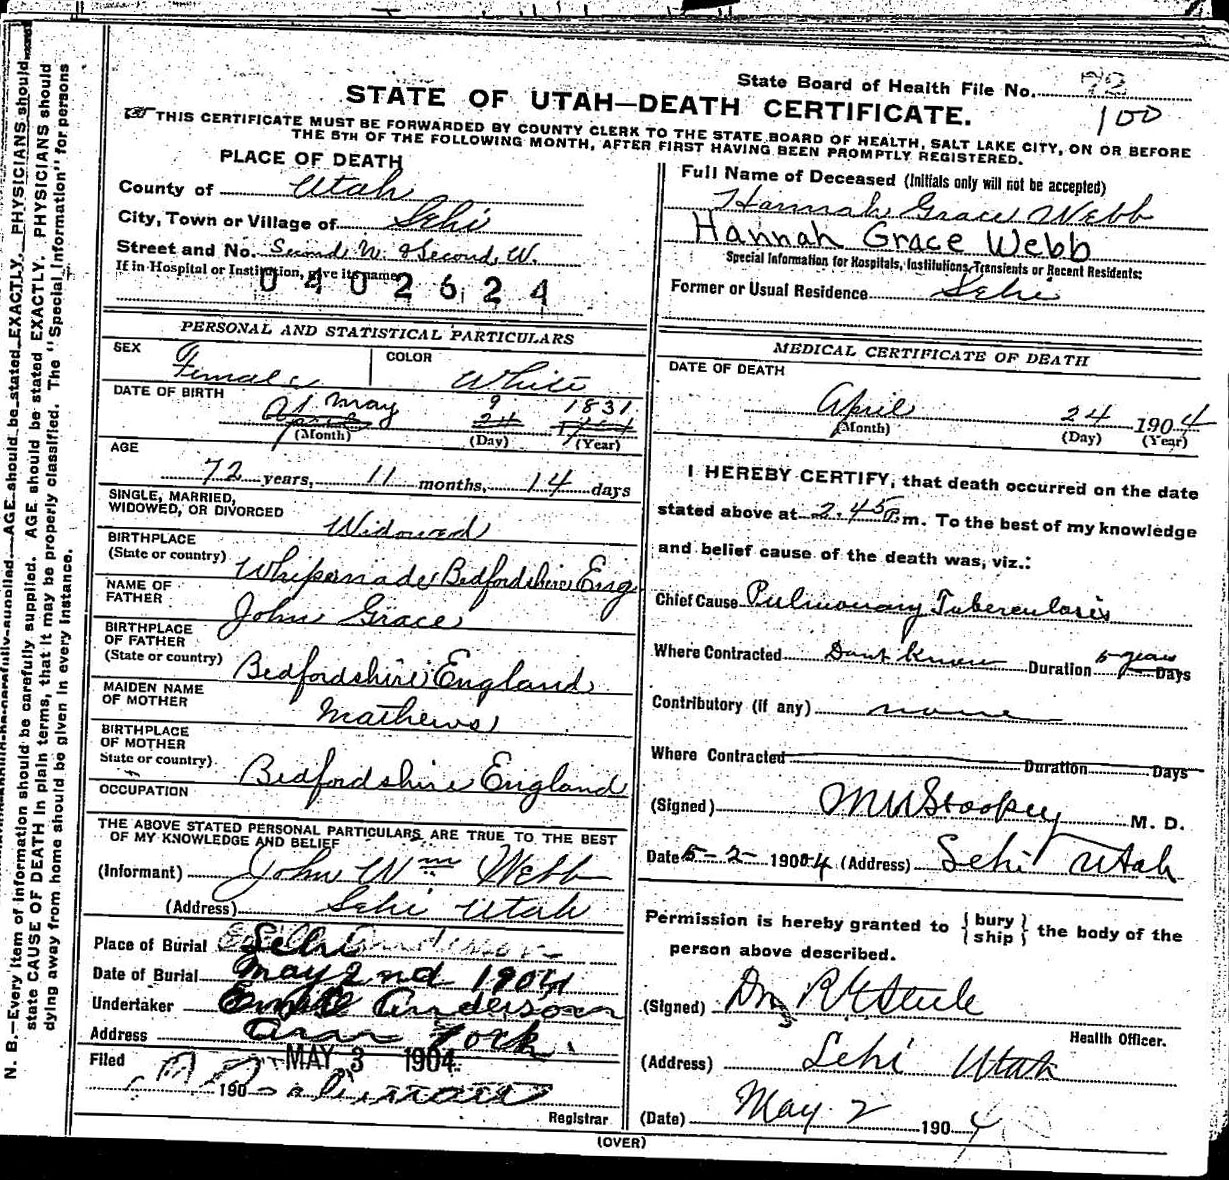 State Board of Health File No. 72
100
STATE OF UTAH—DEATH CERTIFICATE.
THIS CERTIFICATE MUST BE FORWARDED BY COUNTY CLERK TO THE STATE BOARD OF HEALTH, SALT LAKE CITY, ON OR BEFORE
THE 5TH OF THE FOLLOWING MONTH, AFTER FIRST HAVING BEEN PROMPTLY REGISTERED.
PLACE OF DEATH
County of Utah
City, Town or Village of Lehi
Street and No. Second N. & Second W.
If in Hospital or Institution, give its name
0402624
Full Name of Deceased (Initials only will not be accepted)
Hannah Grace Webb
Hannah Grace Webb
Special Information for Hospitals, Institutions, Transients or Recent Residents:
Former or Usual Residence Lehi
PERSONAL AND STATISTICAL PARTICULARS
SEX Female COLOR White
DATE OF BIRTH May 9 1831
24
(Month) (Day) (Year)
AGE
72 years, 11 months, 14 days
SINGLE, MARRIED,
WIDOWED, OR DIVORCED Widowed
BIRTHPLACE
(State or country) Whipsnade Bedfordshire Eng
NAME OF
FATHER John Grace
BIRTHPLACE
OF FATHER
(State or country) Bedfordshire England
MAIDEN NAME
OF MOTHER Mathews
BIRTHPLACE
OF MOTHER
State or country) Bedfordshire England
OCCUPATION
THE ABOVE STATED PERSONAL PARTICULARS ARE TRUE TO THE BEST
OF MY KNOWLEDGE AND BELIEF
(Informant) John Wm Webb
(Address) Lehi Utah
Place of Burial Lehi
Date of Burial May 2nd 1904
Undertaker Anderson
Address
Filed MAY 3 1904
190
Registrar
MEDICAL CERTIFICATE OF DEATH
DATE OF DEATH
April 24 1904
(Month) (Day) (Year)
I HEREBY CERTIFY, that death occurred on the date
stated above at 2.45 P.m. To the best of my knowledge
and belief cause of the death was, viz.:
Chief Cause Pulmonary Tuberculosis
Where Contracted Dont Know Duration 5 years Days
Contributory (if any) none
Where Contracted Duration Days
(Signed) M. D.
Date 5-2- 1904 (Address) Lehi Utah
Permission is hereby granted to { bury ship } the body of the
person above described.
(Signed) Steele
Health Officer.
(Address) Lehi Utah
(Date) May 2 1904
(OVER)
N. B.—Every item of information should be carefully supplied. AGE should be stated EXACTLY. PHYSICIANS should
state CAUSE OF DEATH in plain terms, that it may be properly classified. The "Special Information" for persons
dying away from home should be given in every instance.